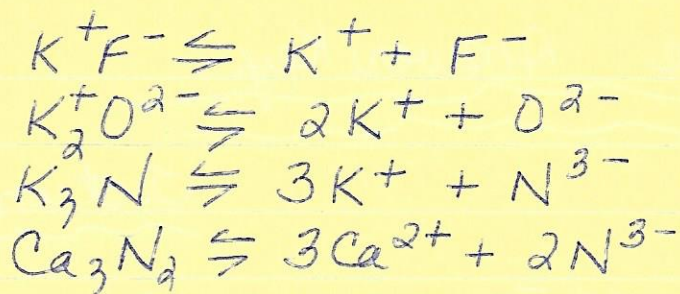 K⁺F⁻ ⇆ K⁺ + F⁻
K₂⁺O²⁻ ⇆ 2K⁺ + O²⁻
K₃N ⇆ 3K⁺ + N³⁻
Ca₃N₂ ⇆ 3Ca²⁺ + 2N³⁻